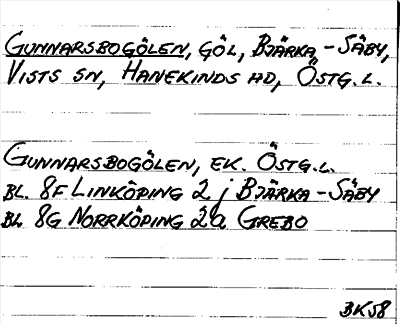 GUNNARSBOGÖLEN, GÖL, BJÄRKA-SÄBY,
VISTS SN, HANEKINDS HD, ÖSTG. L.
GUNNARSBOGÖLEN, EK. ÖSTG. L.
BL. 8F LINKÖPING 2 j BJÄRKA-SÄBY
BL 8G NORRKÖPING 2a GREBO
BK58